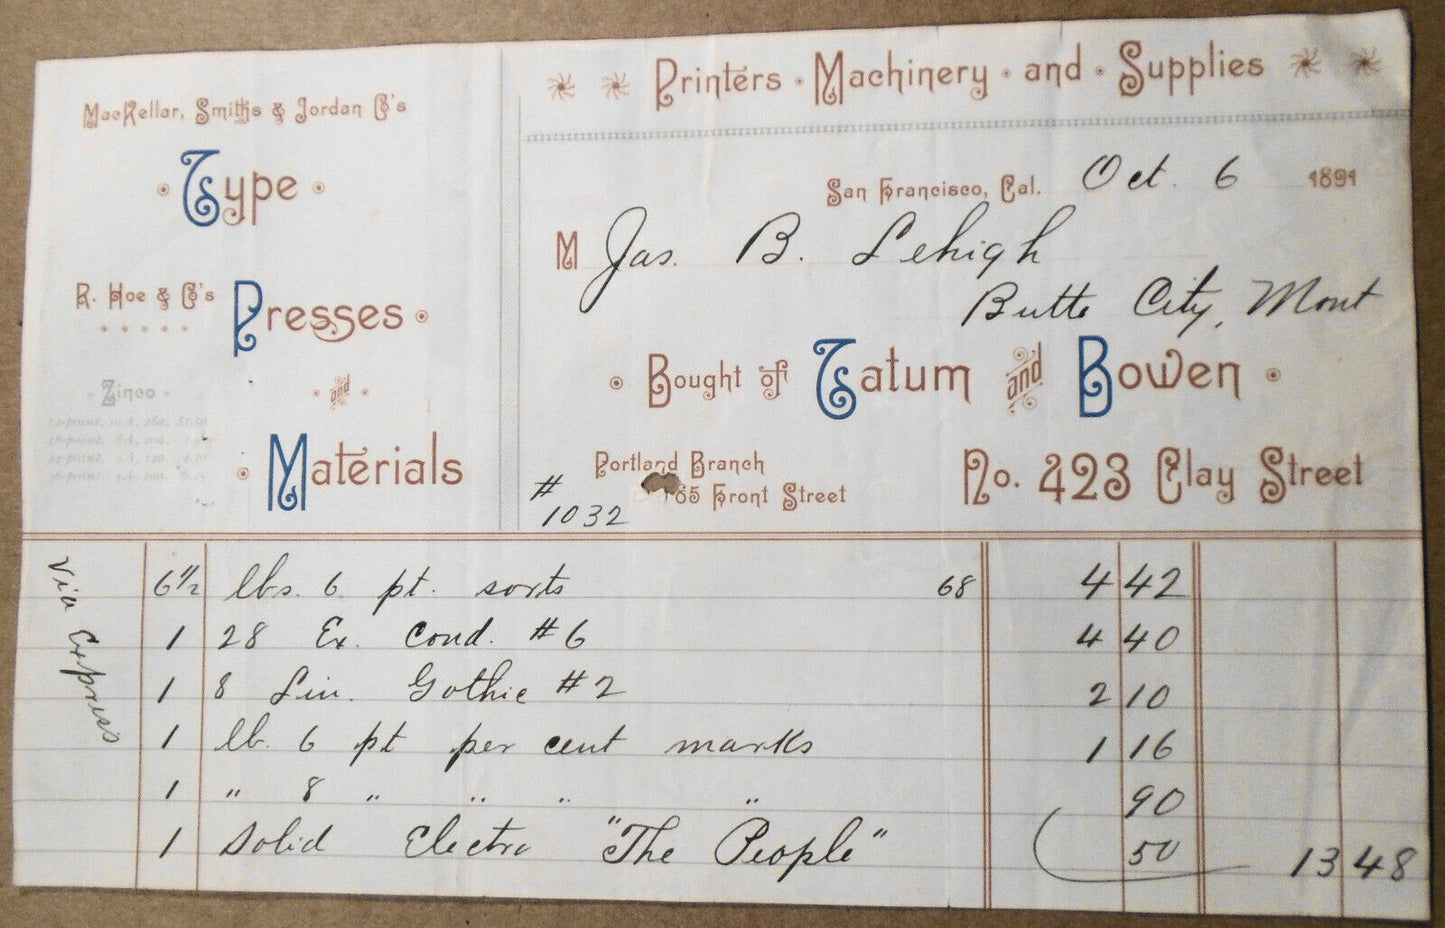 Printers Machinery and Supplies
MacKellar, Smiths & Jordan Co's
Type
R. Hoe & Co's
Presses
and
Materials
Zinco
12-point,
18-point,
24-point,
36-point,
San Francisco, Cal. Oct. 6 1891
M Jas. B. Lehigh
Butte City, Mont
Bought of Tatum and Bowen
Portland Branch
85 Front Street
No. 423 Clay Street
# 1032
Via Express
6 1/2 lbs. 6 pt. sorts 68 4 42
1 28 Ex. Cond. #6 4 40
1 8 Lin. Gothic #2 2 10
1 lb. 6 pt per cent marks 1 16
1 " 8 " " " " 90
1 Solid Electro "The People" 50 13 48